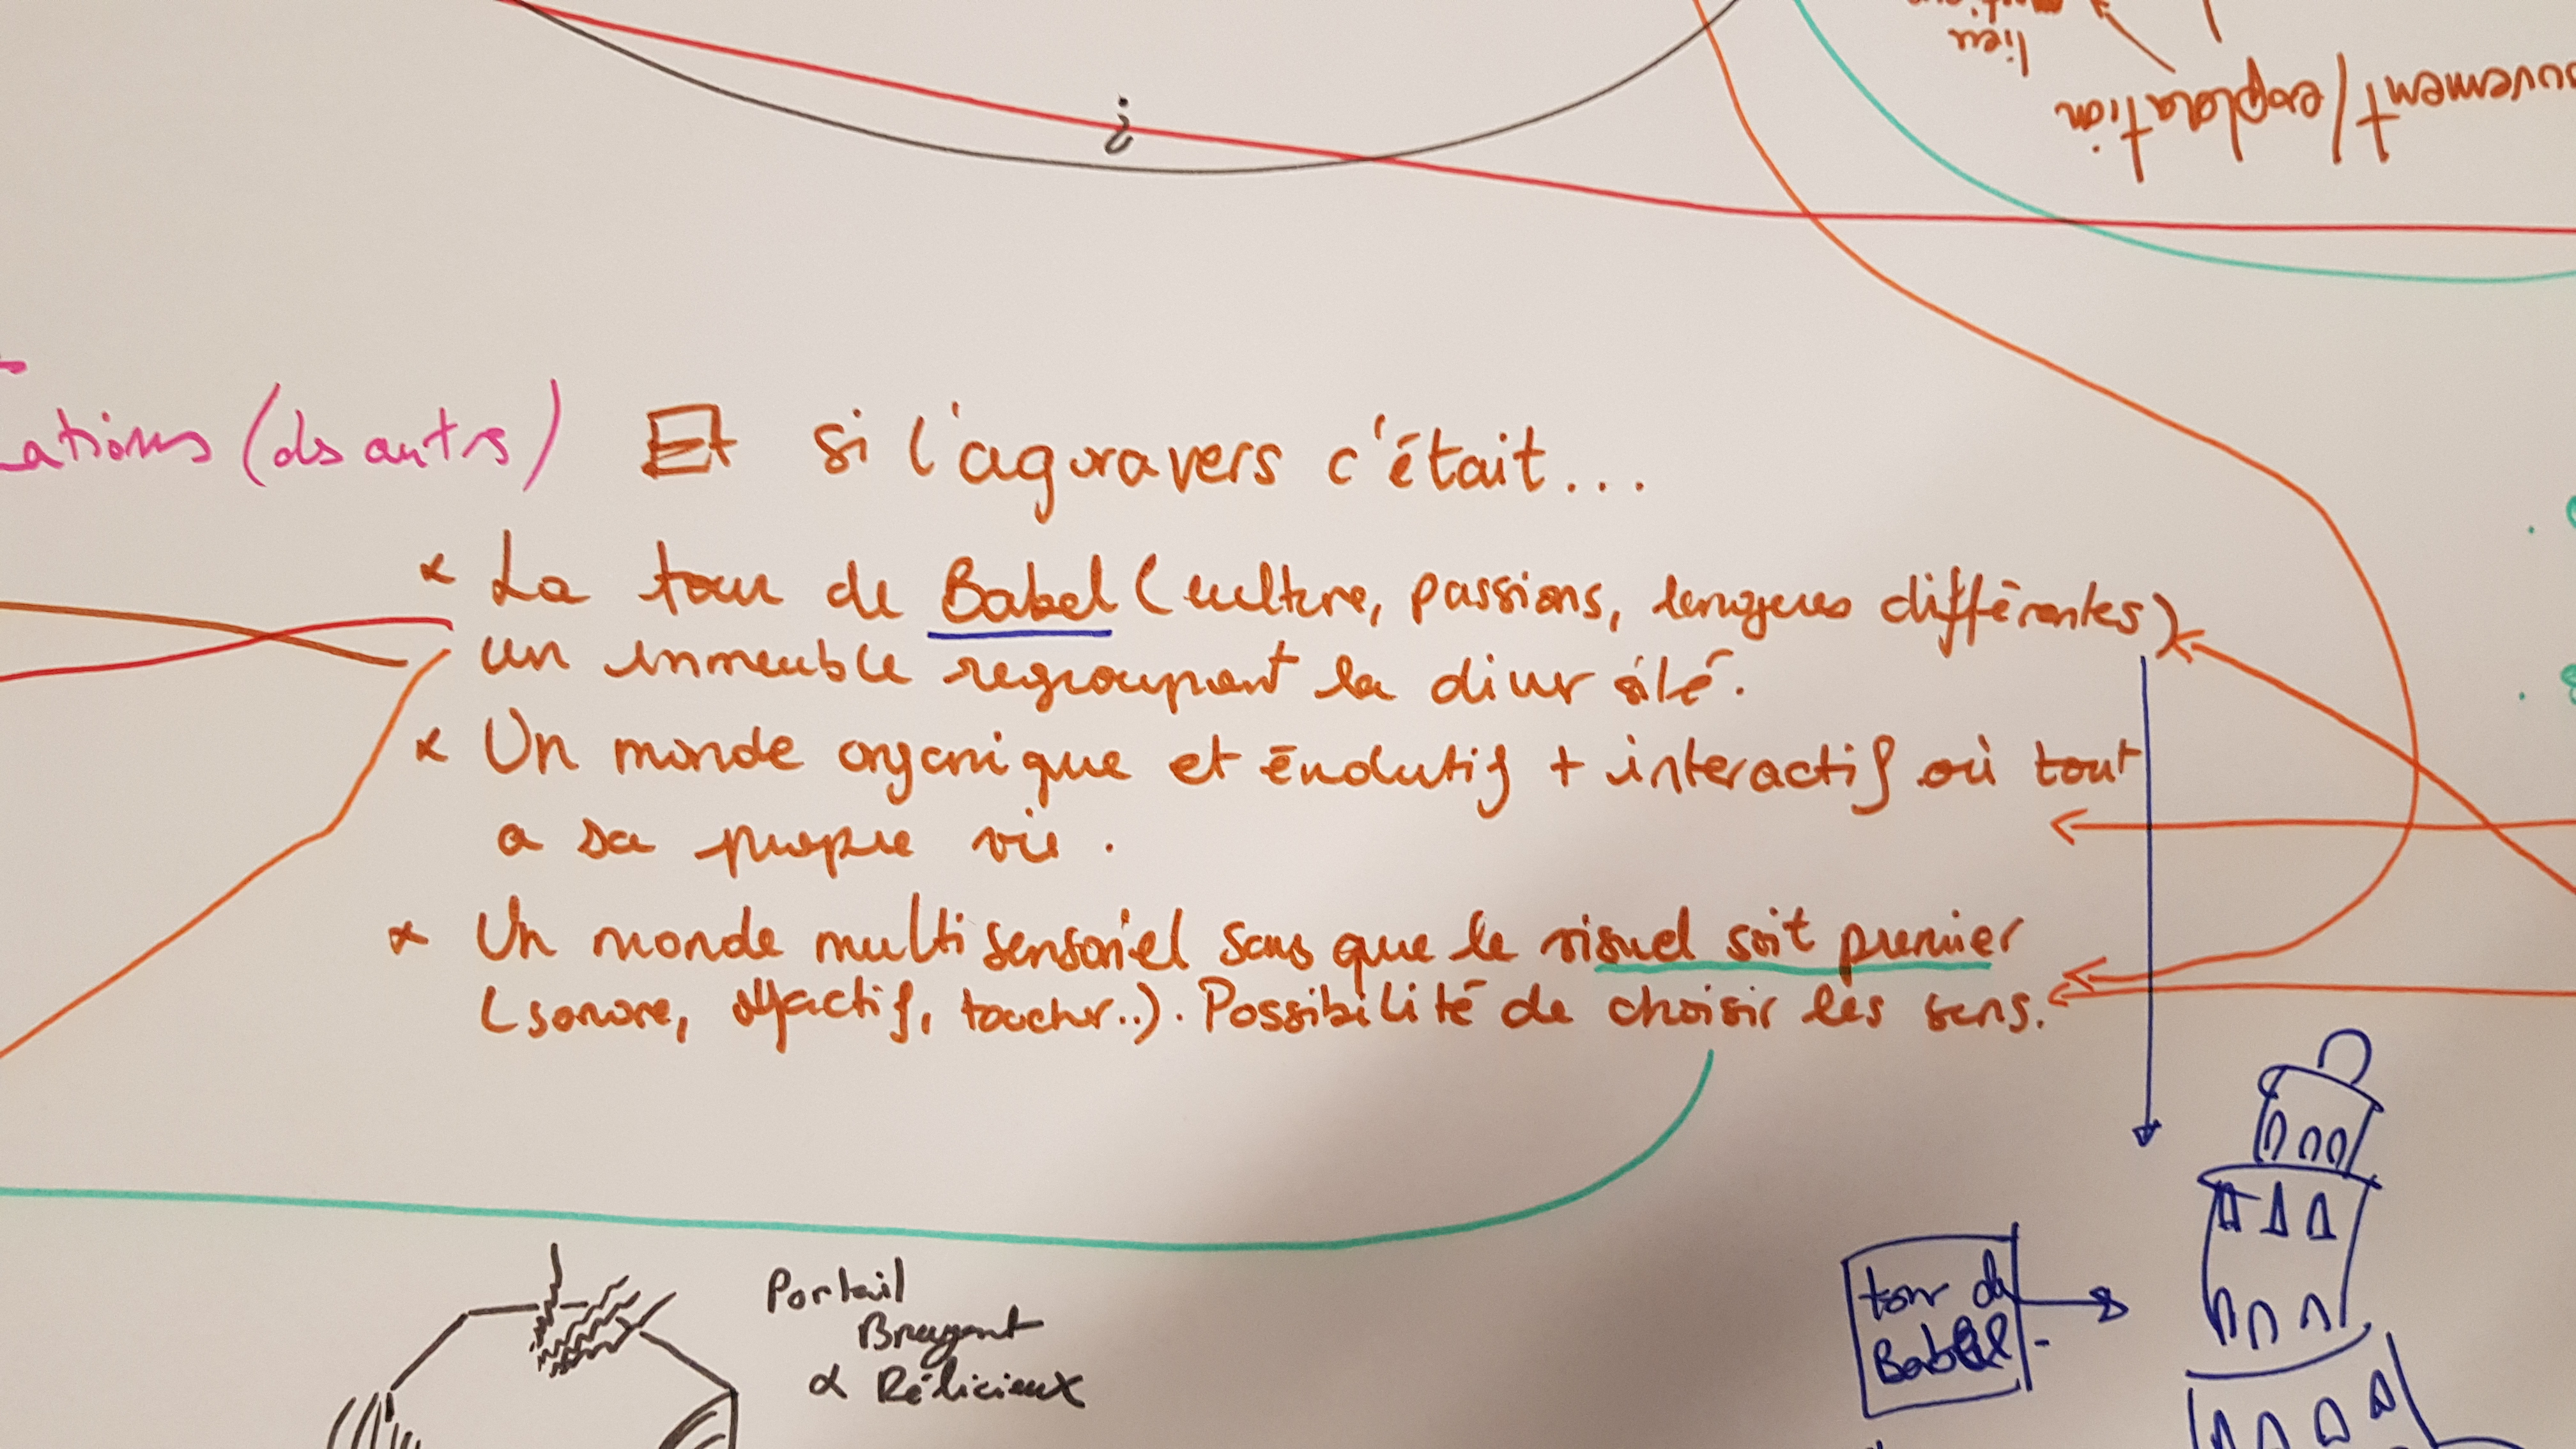 lieu
mouvement/exploration
?
cations (ds autrs)
Et si l'agoravers c'était...
* La tour de Babel (culture, passions, langues différentes)
un immeuble regroupant la diversité.
* Un monde organique et évolutif + interactif où tout
a sa propre vie.
* Un monde multisensoriel sans que le visuel soit premier
(sonore, olfactif, toucher..). Possibilité de choisir les sens.
Portail
Bruyant
&
tour de
Babel